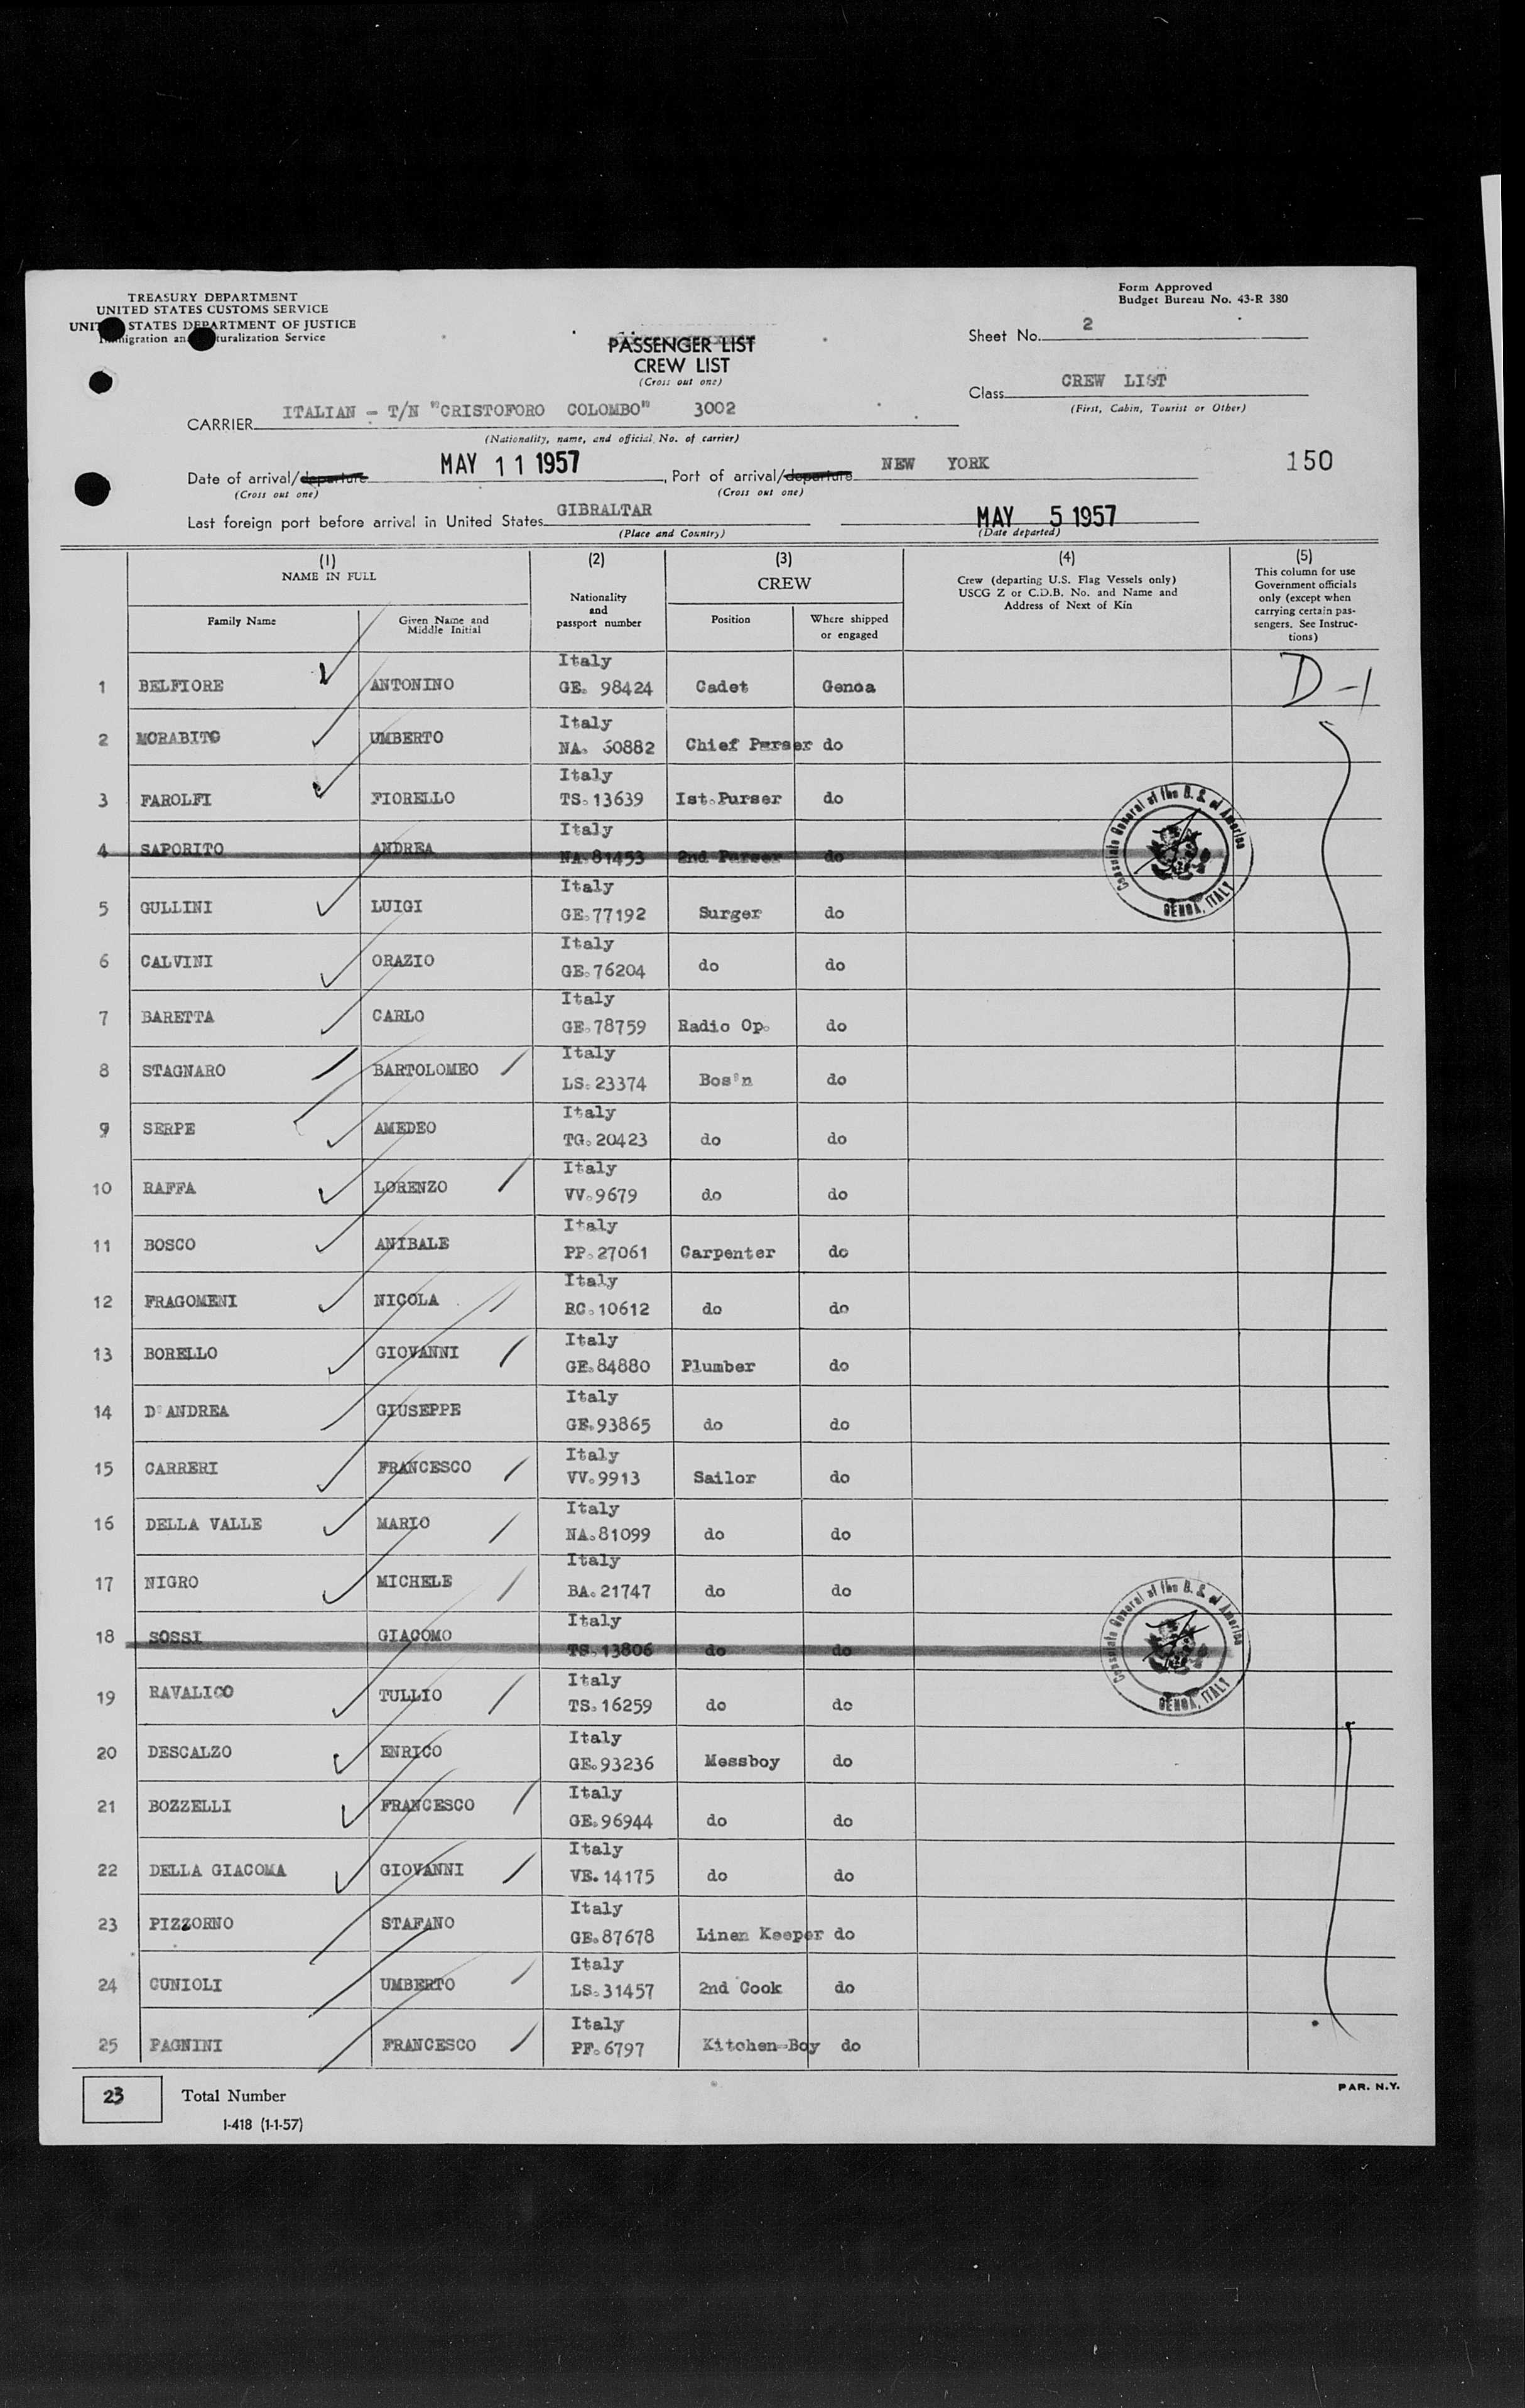 TREASURY DEPARTMENT
UNITED STATES CUSTOMS SERVICE
UNITED STATES DEPARTMENT OF JUSTICE
Immigration and Naturalization Service
Form Approved
Budget Bureau No. 43-R 380
PASSENGER LIST
CREW LIST
(Cross out one)
Sheet No. 2
Class CREW LIST
(First, Cabin, Tourist or Other)
CARRIER ITALIAN - T/N "CRISTOFORO COLOMBO" 3002
(Nationality, name, and official No. of carrier)
Date of arrival/departure MAY 11 1957, Port of arrival/departure NEW YORK 150
(Cross out one) (Cross out one)
Last foreign port before arrival in United States GIBRALTAR MAY 5 1957
(Place and Country) (Date departed)
(1) NAME IN FULL
Family Name
Given Name and Middle Initial
(2)
Nationality and passport number
(3) CREW
Position
Where shipped or engaged
(4)
Crew (departing U.S. Flag Vessels only)
USCG Z or C.D.B. No. and Name and
Address of Next of Kin
(5)
This column for use
Government officials
only (except when
carrying certain pas-
sengers. See Instruc-
tions)
1 BELFIORE ANTONINO Italy GE. 98424 Cadet Genoa D-1
2 MORABITO UMBERTO Italy NA. 60882 Chief Purser do
3 FAROLFI FIORELLO Italy TS.13639 Ist.Purser do
4 SAPORITO ANDREA Italy NA.81453 2nd Purser do
Consulate General of the U. S. of America
GENOA, ITALY
5 GULLINI LUIGI Italy GE.77192 Surger do
6 CALVINI ORAZIO Italy GE.76204 do do
7 BARETTA CARLO Italy GE.78759 Radio Op. do
8 STAGNARO BARTOLOMEO Italy LS.23374 Bos'n do
9 SERPE AMEDEO Italy TG.20423 do do
10 RAFFA LORENZO Italy VV.9679 do do
11 BOSCO ANIBALE Italy PP.27061 Carpenter do
12 FRAGOMENI NICOLA Italy RC.10612 do do
13 BORELLO GIOVANNI Italy GE.84880 Plumber do
14 D'ANDREA GIUSEPPE Italy GE.93865 do do
15 CARRERI FRANCESCO Italy VV.9913 Sailor do
16 DELLA VALLE MARIO Italy NA.81099 do do
17 NIGRO MICHELE Italy BA.21747 do do
18 SOSSI GIACOMO Italy TS.13806 do do
Consulate General of the U. S. of America
GENOA, ITALY
19 RAVALICO TULLIO Italy TS.16259 do do
20 DESCALZO ENRICO Italy GE.93236 Messboy do
21 BOZZELLI FRANCESCO Italy GE.96944 do do
22 DELLA GIACOMA GIOVANNI Italy VE.14175 do do
23 PIZZORNO STAFANO Italy GE.87678 Linen Keeper do
24 CUNIOLI UMBERTO Italy LS.31457 2nd Cook do
25 PAGNINI FRANCESCO Italy PF.6797 Kitchen-Boy do
23 Total Number
I-418 (1-1-57)
PAR. N.Y.